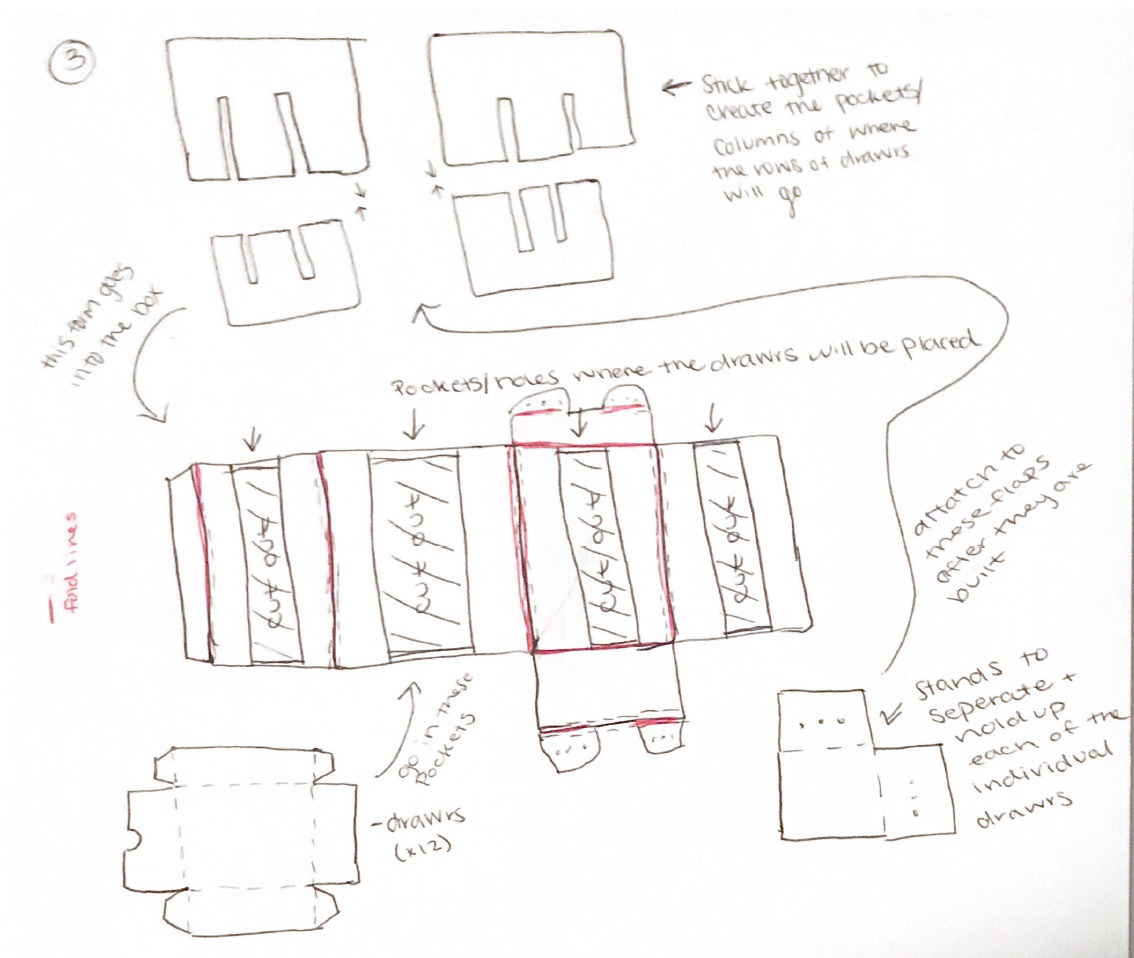 3
← Stick together to
create the pockets/
columns of where
the rows of drawrs
will go
this form goes
into the box
Pockets/holes where the drawrs will be placed
cut out
cut out
cut out
cut out
fold lines
attatch to
these flaps
after they are
built
Stands to
seperate +
hold up
each of the
individual
drawrs
go in these
pockets
- drawrs
(x12)